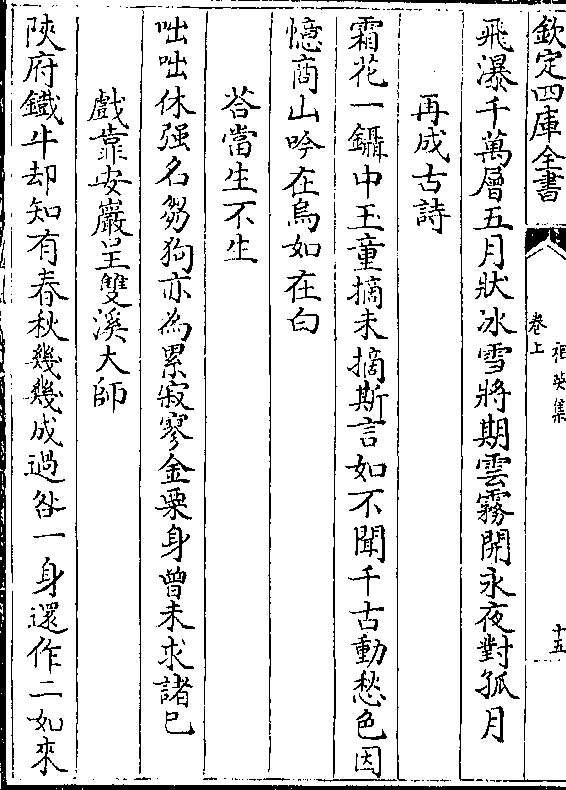 欽定四庫全書
祖英集
卷上
十五
飛瀑千萬層五月狀冰雪將期雲霧開永夜對孤月
再成古詩
霜花一鑷中玉童摘未摘斯言如不聞千古動愁色因
憶商山吟在烏如在白
荅當生不生
咄咄休强名芻狗亦為累寂寥金粟身曾未求諸已
戲靠安巖呈雙溪大師
陜府鐵牛却知有春秋幾幾成過咎一身還作二如來